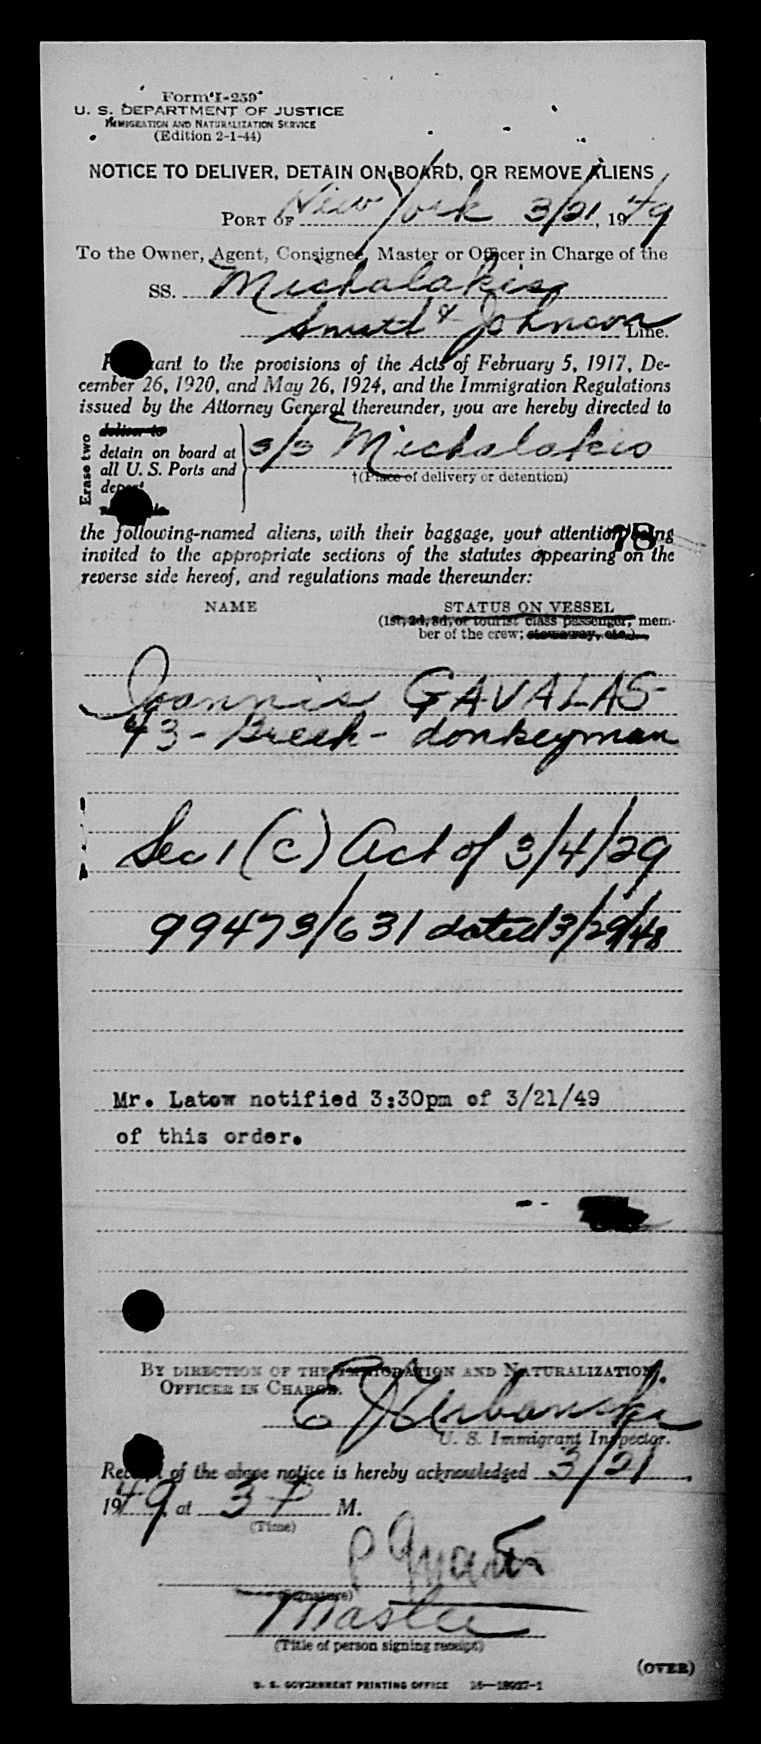 Form I-259
U. S. DEPARTMENT OF JUSTICE
IMMIGRATION AND NATURALIZATION SERVICE
(Edition 2-1-44)
NOTICE TO DELIVER, DETAIN ON BOARD, OR REMOVE ALIENS
PORT OF New York 3/21, 1949
To the Owner, Agent, Consignee, Master or Officer in Charge of the
SS. Michalakis
Smith & Johnson Line.
Pursuant to the provisions of the Acts of February 5, 1917, De-
cember 26, 1920, and May 26, 1924, and the Immigration Regulations
issued by the Attorney General thereunder, you are hereby directed to
Erase two
deliver to
detain on board at
all U. S. Ports and
deport
s/s Michalakis
†(Place of delivery or detention)
the following-named aliens, with their baggage, your attention being
78
invited to the appropriate sections of the statutes appearing on the
reverse side hereof, and regulations made thereunder:
NAME STATUS ON VESSEL
(1st, 2d, 3d, or tourist class passenger, mem-
ber of the crew; stowaway, etc.)
Ioannis GAVALAS
43 - Greek - donkeyman
Sec 1 (C) Act of 3/4/29
99473/631 dated 3/29/48
Mr. Latow notified 3:30pm of 3/21/49
of this order.
BY DIRECTION OF THE IMMIGRATION AND NATURALIZATION
OFFICER IN CHARGE.
E J Urbanski
U. S. Immigrant Inspector.
Receipt of the above notice is hereby acknowledged 3/21,
1949 at 3 P M.
(Time)
(Signature)
Master
(Title of person signing receipt)
(OVER)
U. S. GOVERNMENT PRINTING OFFICE 16—18037-1